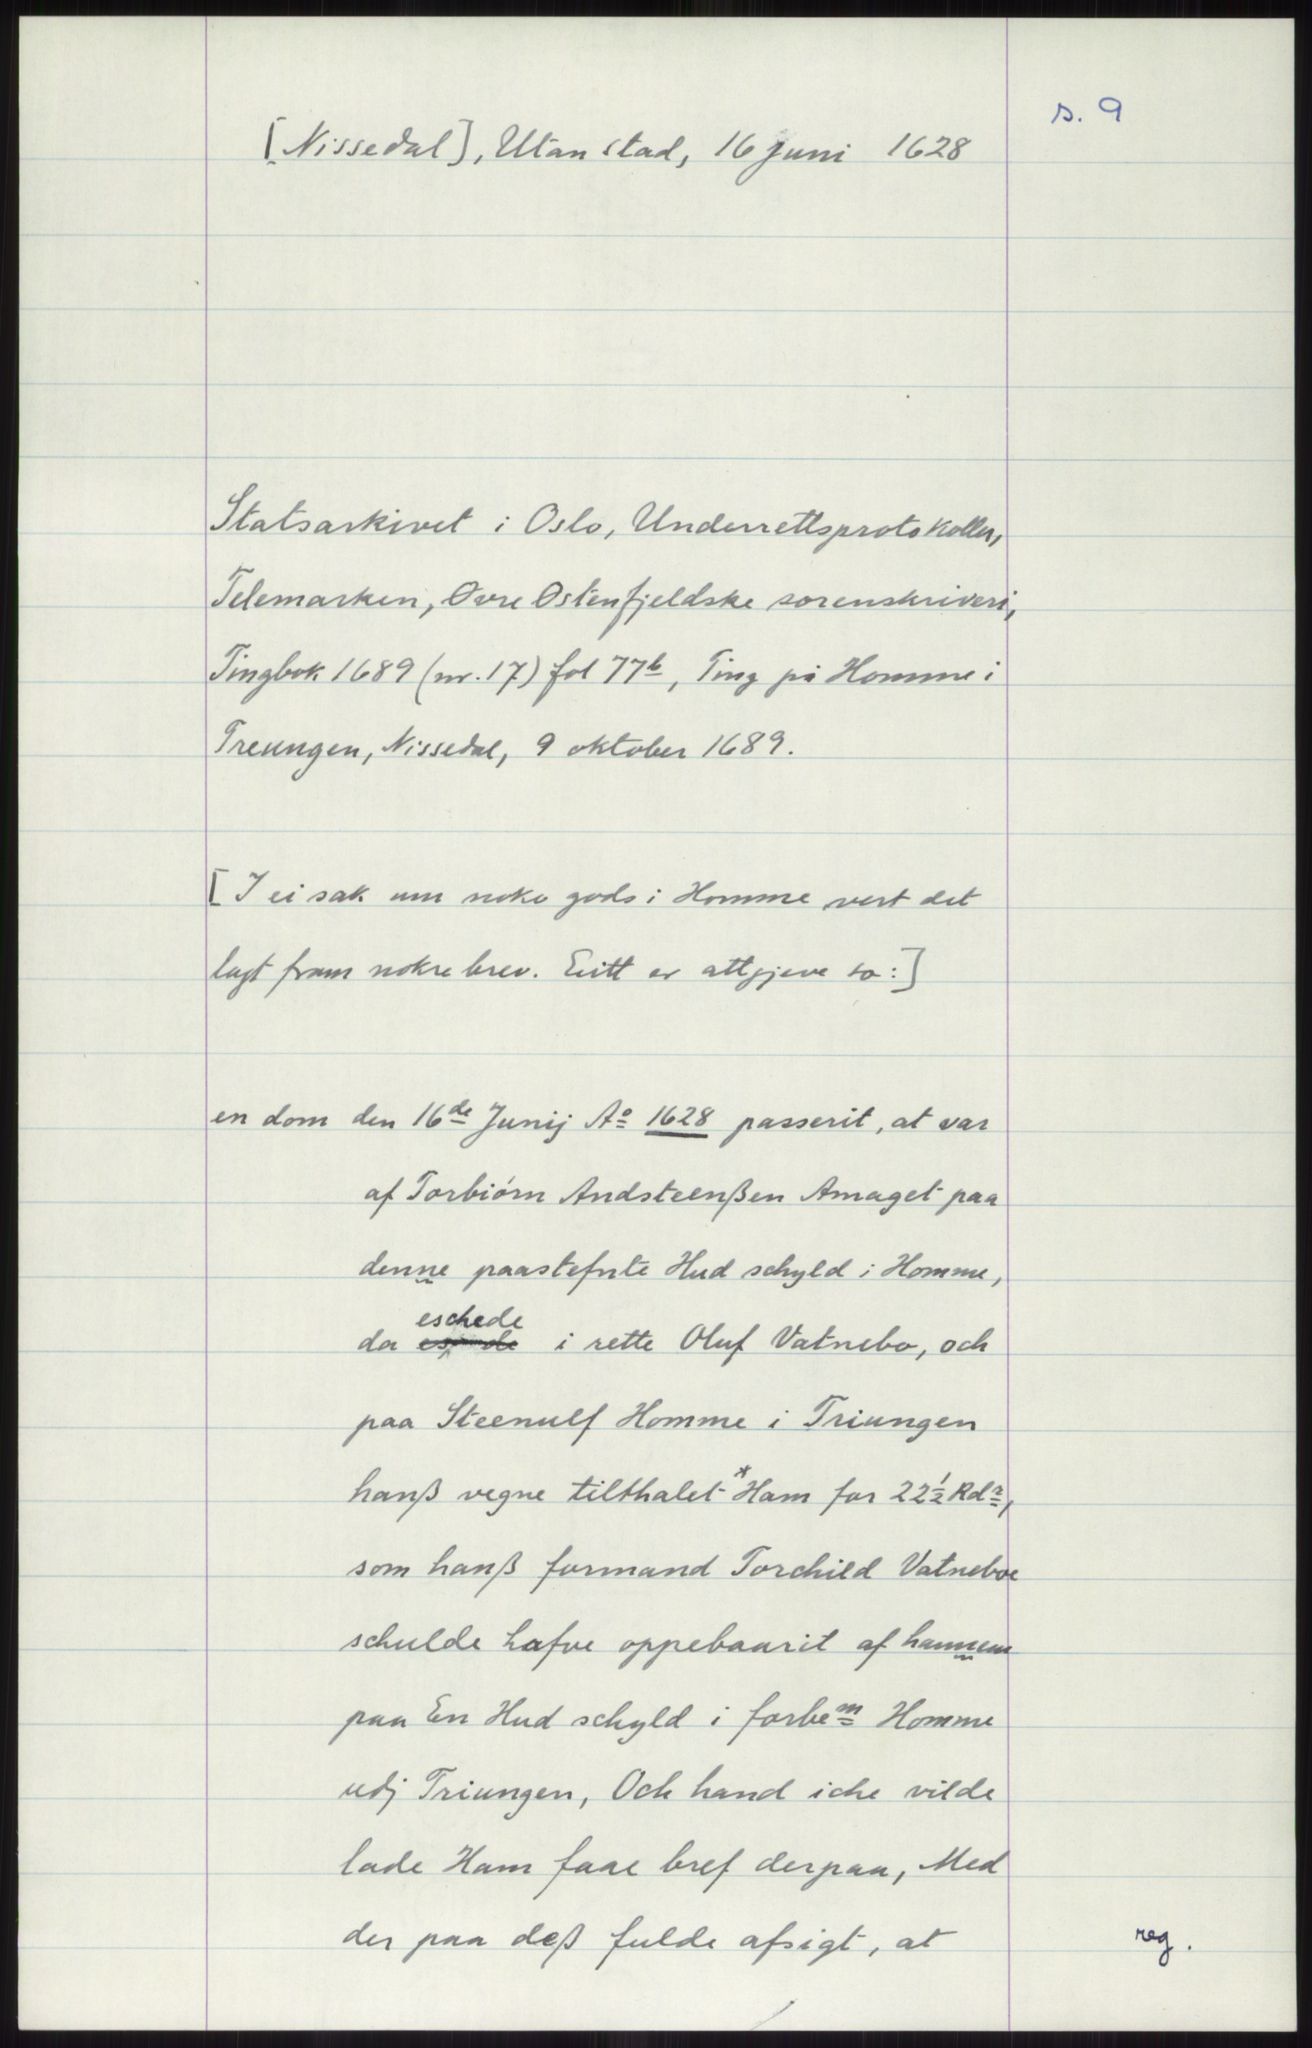 s. 9
[Nissedal], Utan stad, 16 juni 1628
Statsarkivet i Oslo, Underrettsprotokoller,
Telemarken, Øvre Østenfjeldske sorenskriveri,
Tingbok 1689 (nr. 17) fol 77b, Ting på Homme i
Treungen, Nissedal, 9 oktober 1689.
[I ei sak um noko gods i Homme vert det
lagt fram nokre brev. Eitt er attgjeve so:]
en dom den 16de Junij Ao 1628 passerit, at var
af Torbiörn Andsteenßen Amaget paa
denne paastefnte Hud schyld i Homme,
eschede
da i rette Oluf Vatnebo, och
paa Steenulf Homme i Triungen
hanß vegne tilthalet *Ham for 22½ Rdr,
som hanß formand Torchild Vatneboe
schulde hafve oppebaarit af hannem
paa En Hud schyld i forbem Homme
udj Triungen, Och hand iche vilde
lade Ham faae bref derpaa, Med
der paa deß fulde afsigt, at
reg.